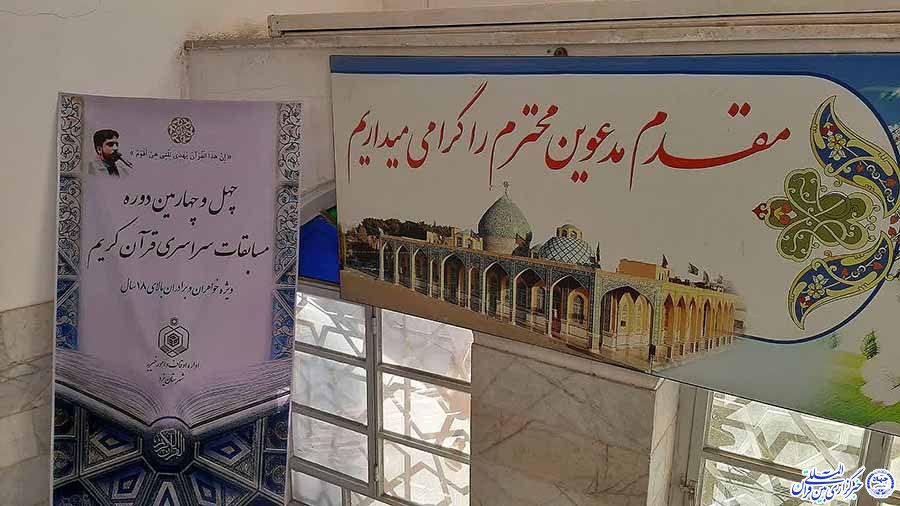 «إِنَّ هَذَا الْقُرْآنَ يَهْدِي لِلَّتِي هِيَ أَقْوَمُ»
چهل و چهارمین دوره
مسابقات سراسری قرآن کریم
ویژه خواهران و برادران بالای ۱۸ سال
اداره اوقاف و امور خیریه
شهرستان یزد
القرآن الکریم
مقدم مدعوین محترم را گرامی میداریم
خبرگزاری بین‌المللی قرآن